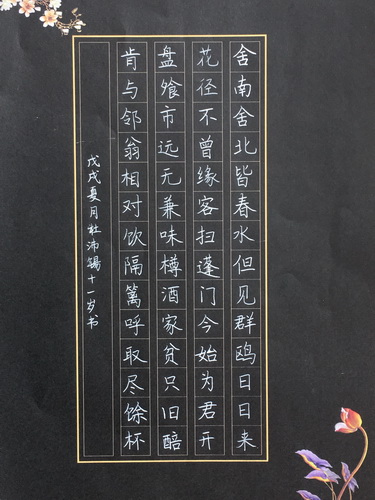 舍南舍北皆春水但见群鸥日日来
花径不曾缘客扫蓬门今始为君开
盘飧市远无兼味樽酒家贫只旧醅
肯与邻翁相对饮隔篱呼取尽馀杯
戊戌夏月杜沛锡十一岁书